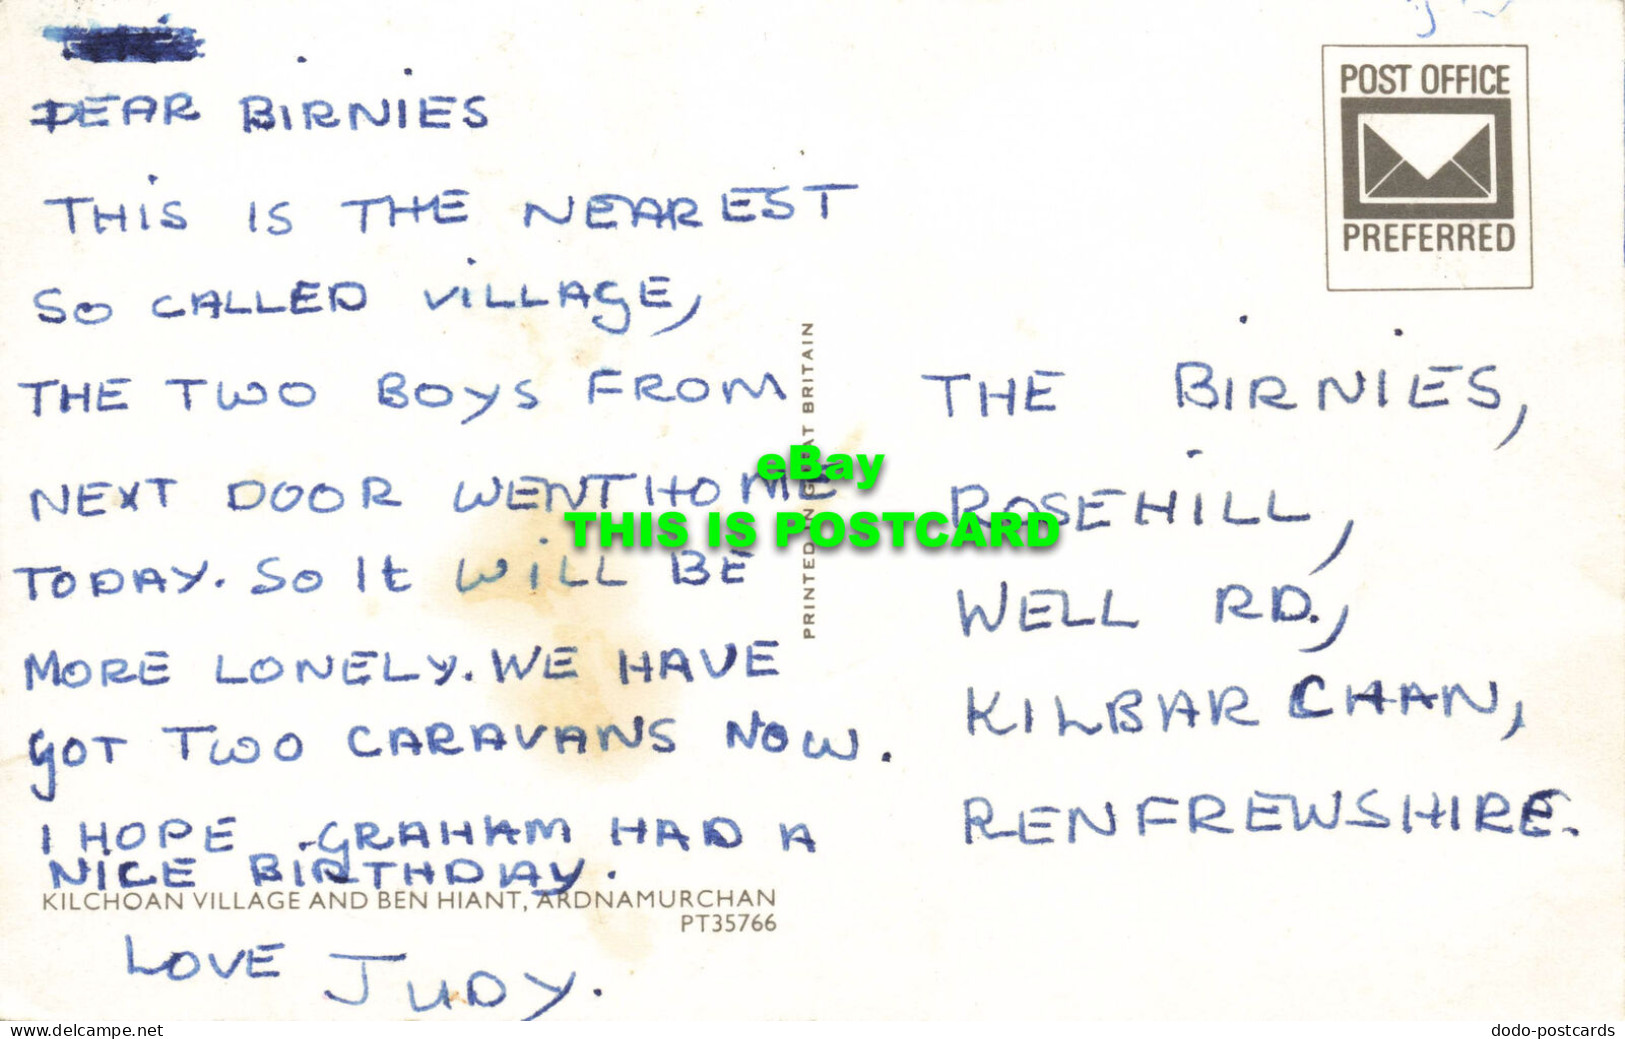 DEAR BIRNIES
THIS IS THE NEAREST
SO CALLED VILLAGE,
THE TWO BOYS FROM
NEXT DOOR WENT HOME
TODAY. SO It WILL BE
MORE LONELY. WE HAVE
GOT TWO CARAVANS NOW.
I HOPE GRAHAM HAD A
NICE BIRTHDAY.
KILCHOAN VILLAGE AND BEN HIANT, ARDNAMURCHAN
PT35766
LOVE JUDY.
PRINTED IN GREAT BRITAIN
POST OFFICE
PREFERRED
THE BIRNIES,
ROSEHILL,
WELL RD.,
KILBARCHAN,
RENFREWSHIRE.
eBay
THIS IS POSTCARD
delcampe.net
dodo-postcards